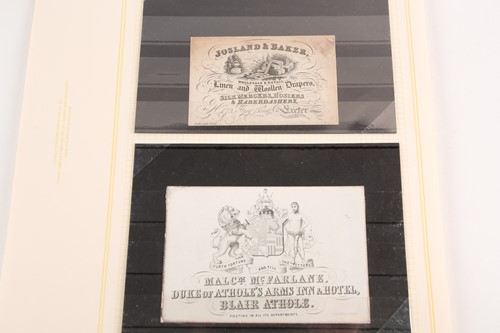 JOSLAND & BAKER,
WHOLESALE & RETAIL
Linen and Woollen Drapers,
SILK MERCERS, HOSIERS
& HABERDASHERS,
Exeter
FURTH FORTUNE AND FILL THE FETTERS
MALCM. MCFARLANE,
DUKE OF ATHOLE'S ARMS INN & HOTEL,
BLAIR ATHOLE.
POSTING IN ALL ITS DEPARTMENTS.